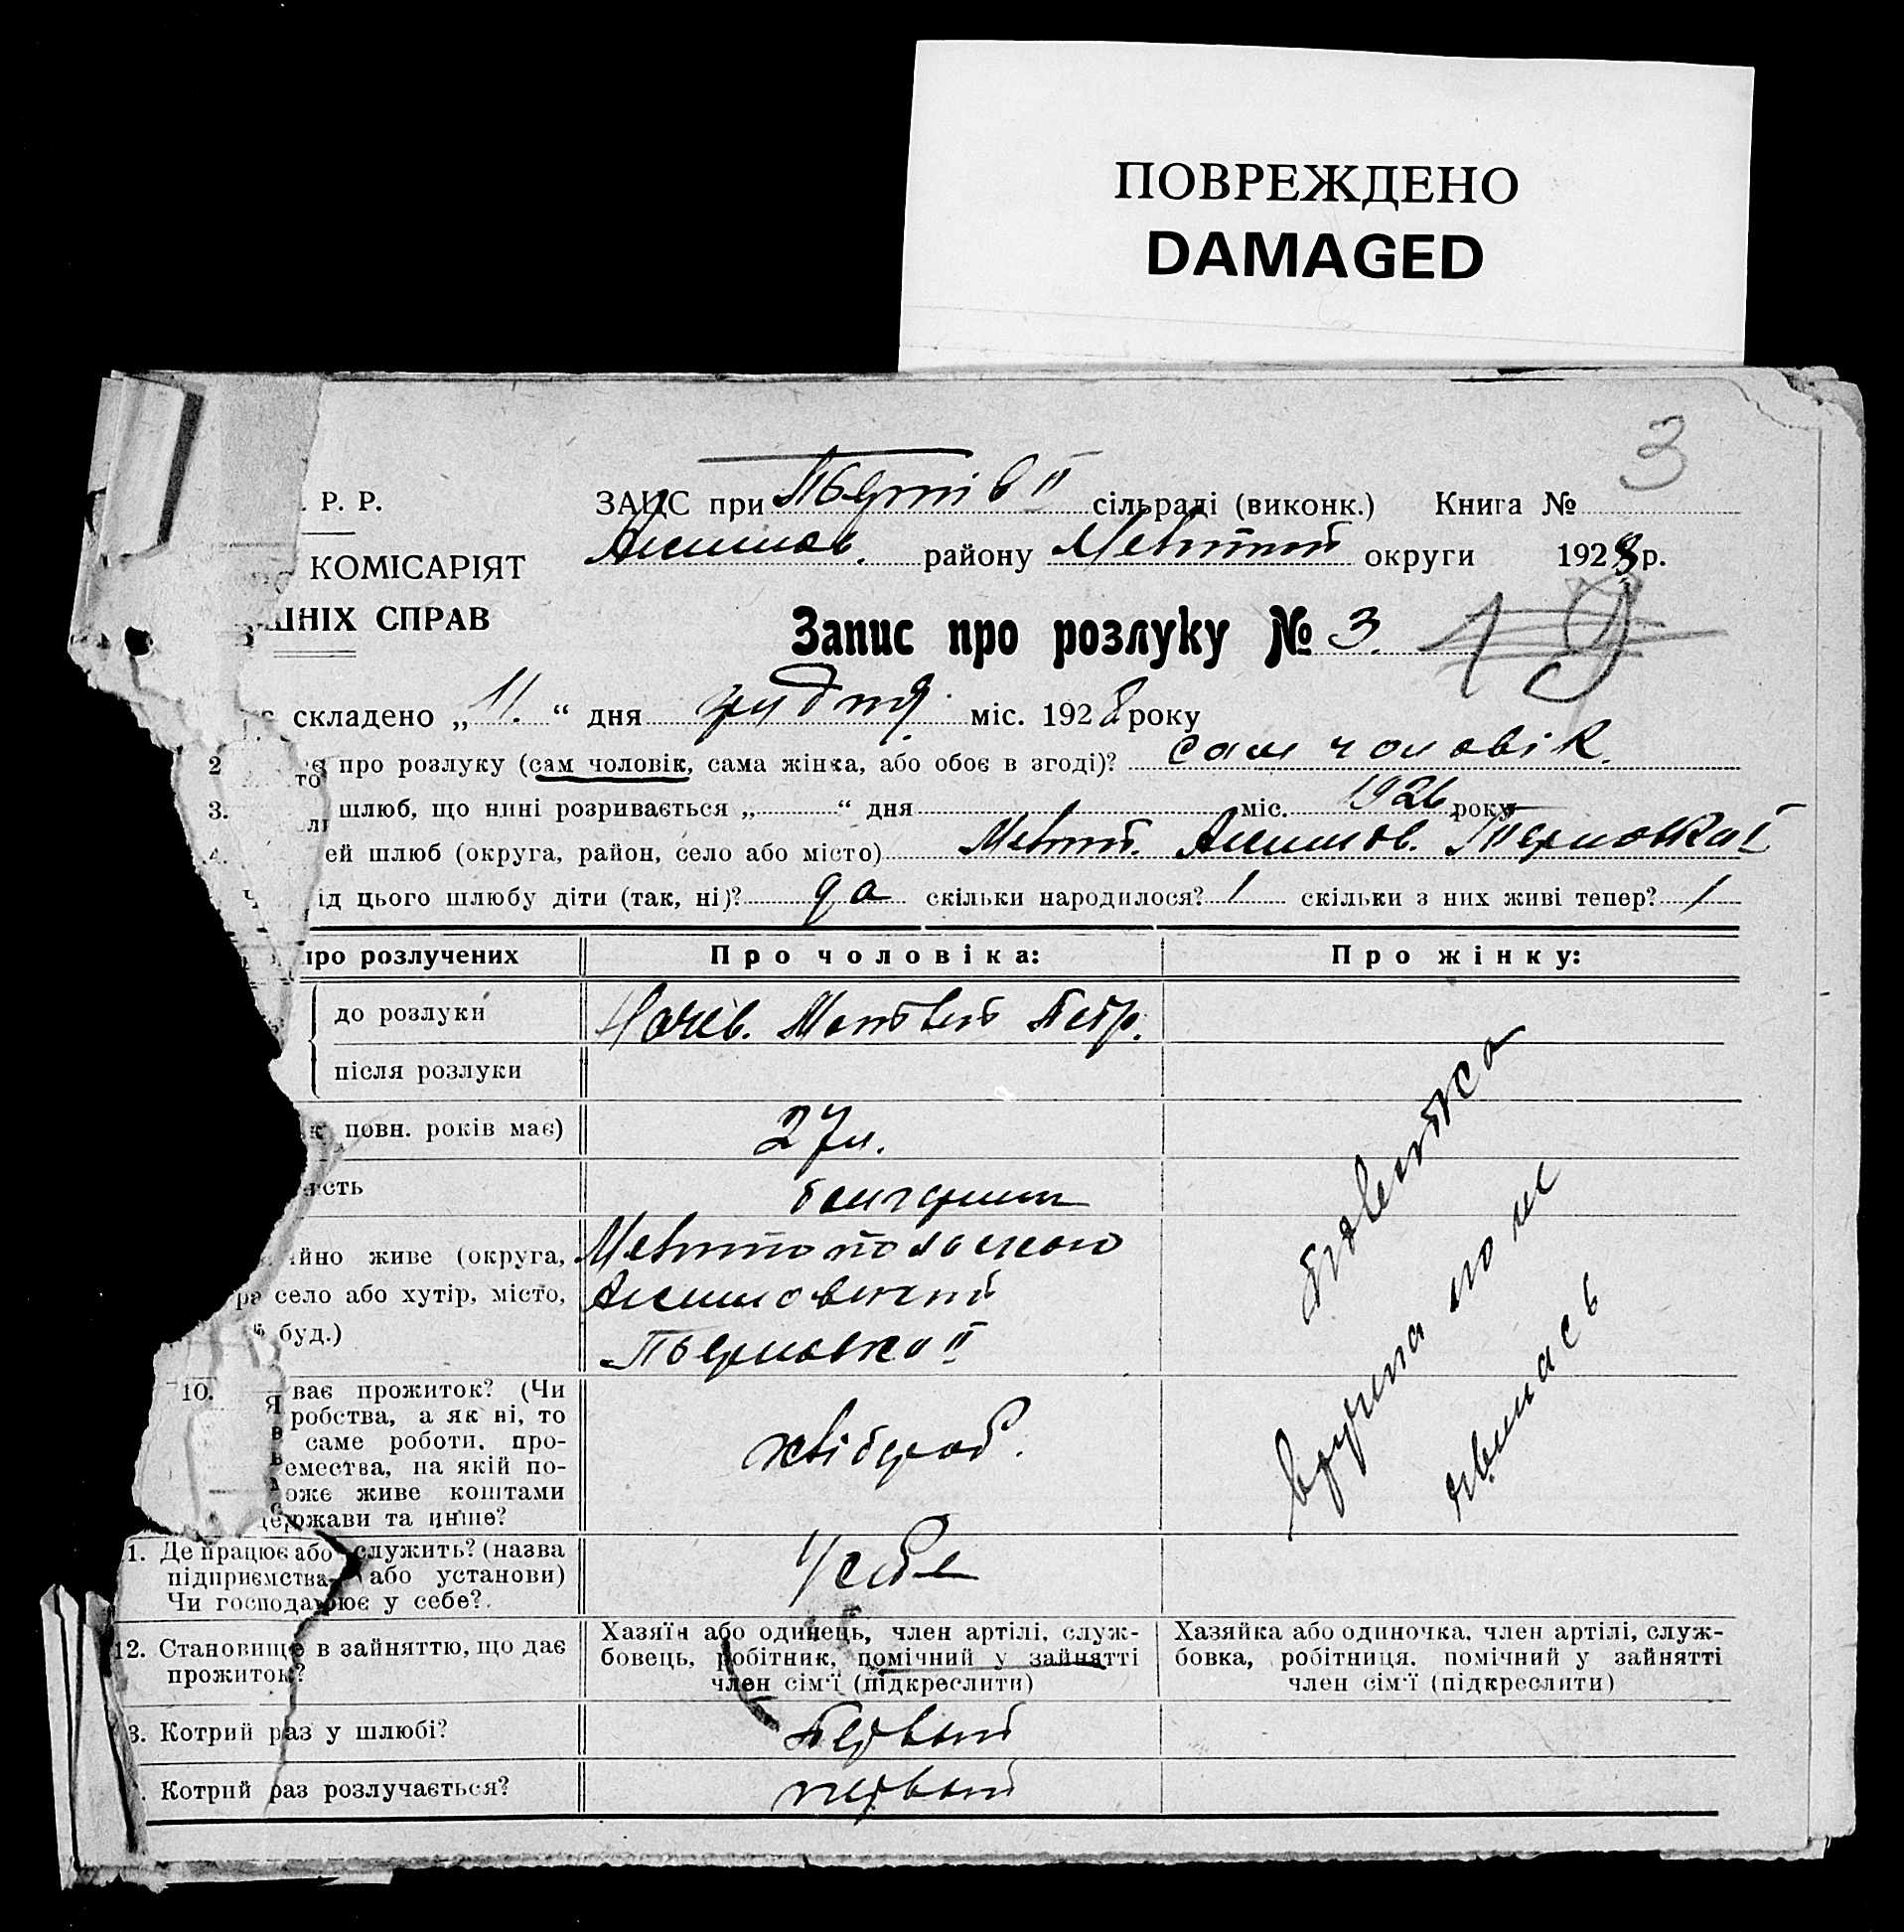 ПОВРЕЖДЕНО
DAMAGED
3
Р. Р.
ЗАЦС при II сільраді (виконк.) Книга №
КОМІСАРІЯТ
району округи 1928 р.
ШНІХ СПРАВ
Запис про розлуку № 3. 19
складено „ 11. “ дня грудня міс. 1928 року
2 про розлуку (сам чоловік, сама жінка, або обоє в згоді)? сам чоловік.
3. шлюб, що нині розривається „ “ дня міс. 1926 року
4. ей шлюб (округа, район, село або місто) Меліт. Акимов.
ід цього шлюбу діти (так, ні)? да скільки народилося? 1 скільки з них живі тепер? 1
про розлучених
Про чоловіка:
Про жінку:
до розлуки
Матвей Петр.
після розлуки
повн. років має)
27 л.
ість
болгарин
ійно живе (округа,
село або хутір, місто,
буд.)
Мелитопольскою
Акимовский
II
10. ває прожиток? (Чи
робства, а як ні, то
саме роботи, про-
емества, на якій по-
оже живе коштами
держави та инше?
хлібороб.
1. Де працює або служить? (назва
підприємства або установи)
Чи господарює у себе?
У себе
12. Становище в зайняттю, що дає
прожиток?
Хазяїн або одинець, член артілі, служ-
бовець, робітник, помічний у зайнятті
член сім'ї (підкреслити)
Хазяйка або одиночка, член артілі, служ-
бовка, робітниця, помічний у зайнятті
член сім'ї (підкреслити)
3. Котрий раз у шлюбі?
Первый
. Котрий раз розлучається?
первый
повестка
вручена но не
явилась